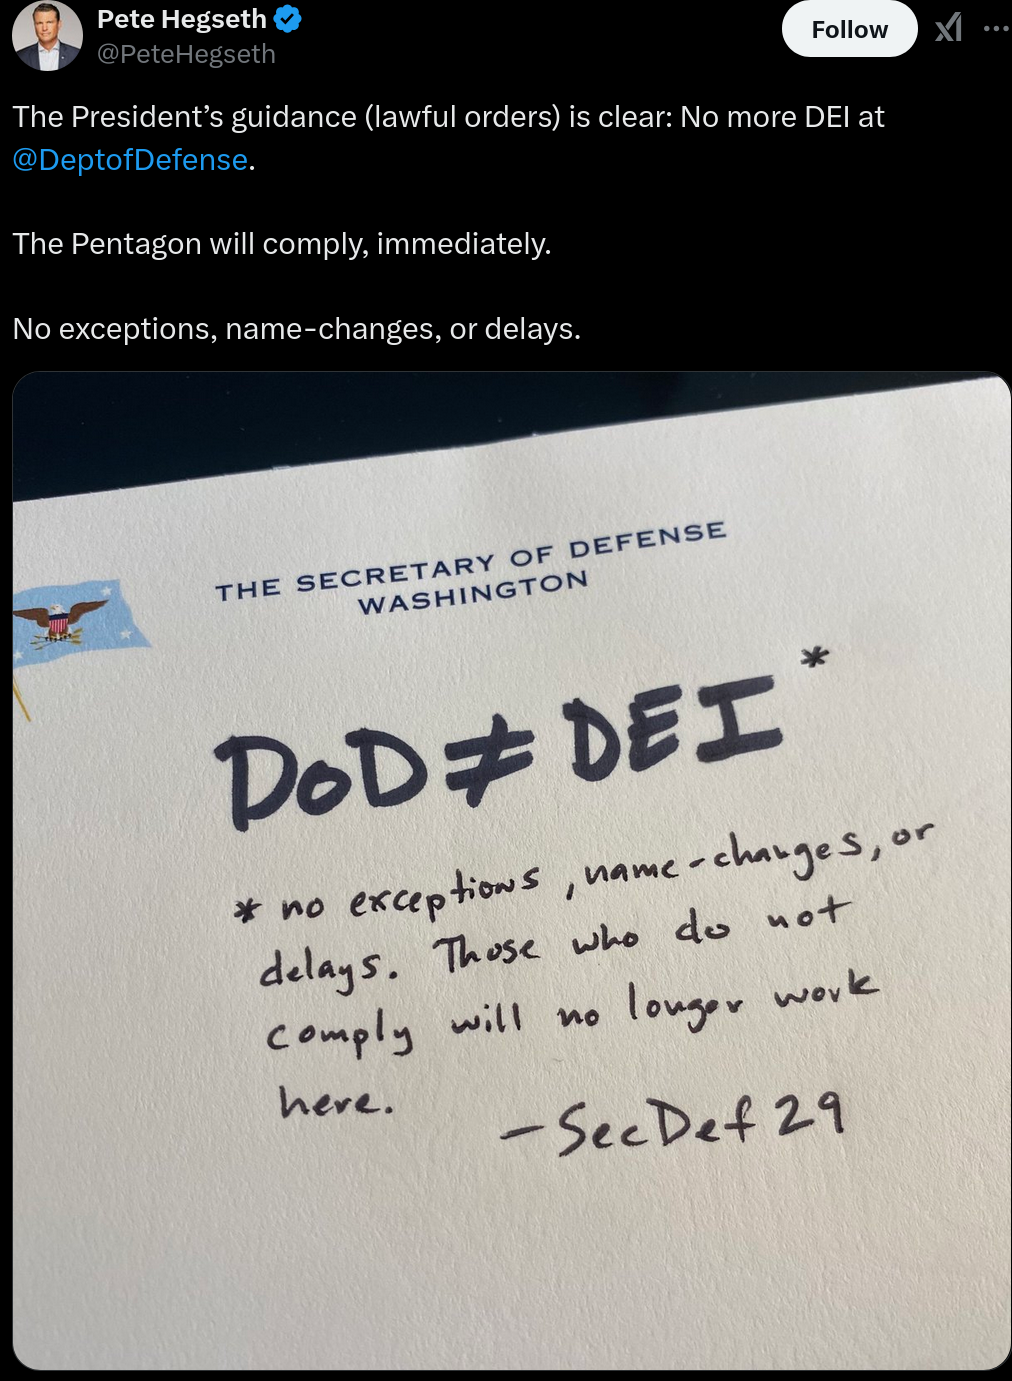 Pete Hegseth
@PeteHegseth
Follow
The President’s guidance (lawful orders) is clear: No more DEI at
@DeptofDefense.
The Pentagon will comply, immediately.
No exceptions, name-changes, or delays.
THE SECRETARY OF DEFENSE
WASHINGTON
DoD ≠ DEI *
* no exceptions, name-changes, or
delays. Those who do not
comply will no longer work
here.
- SecDef 29